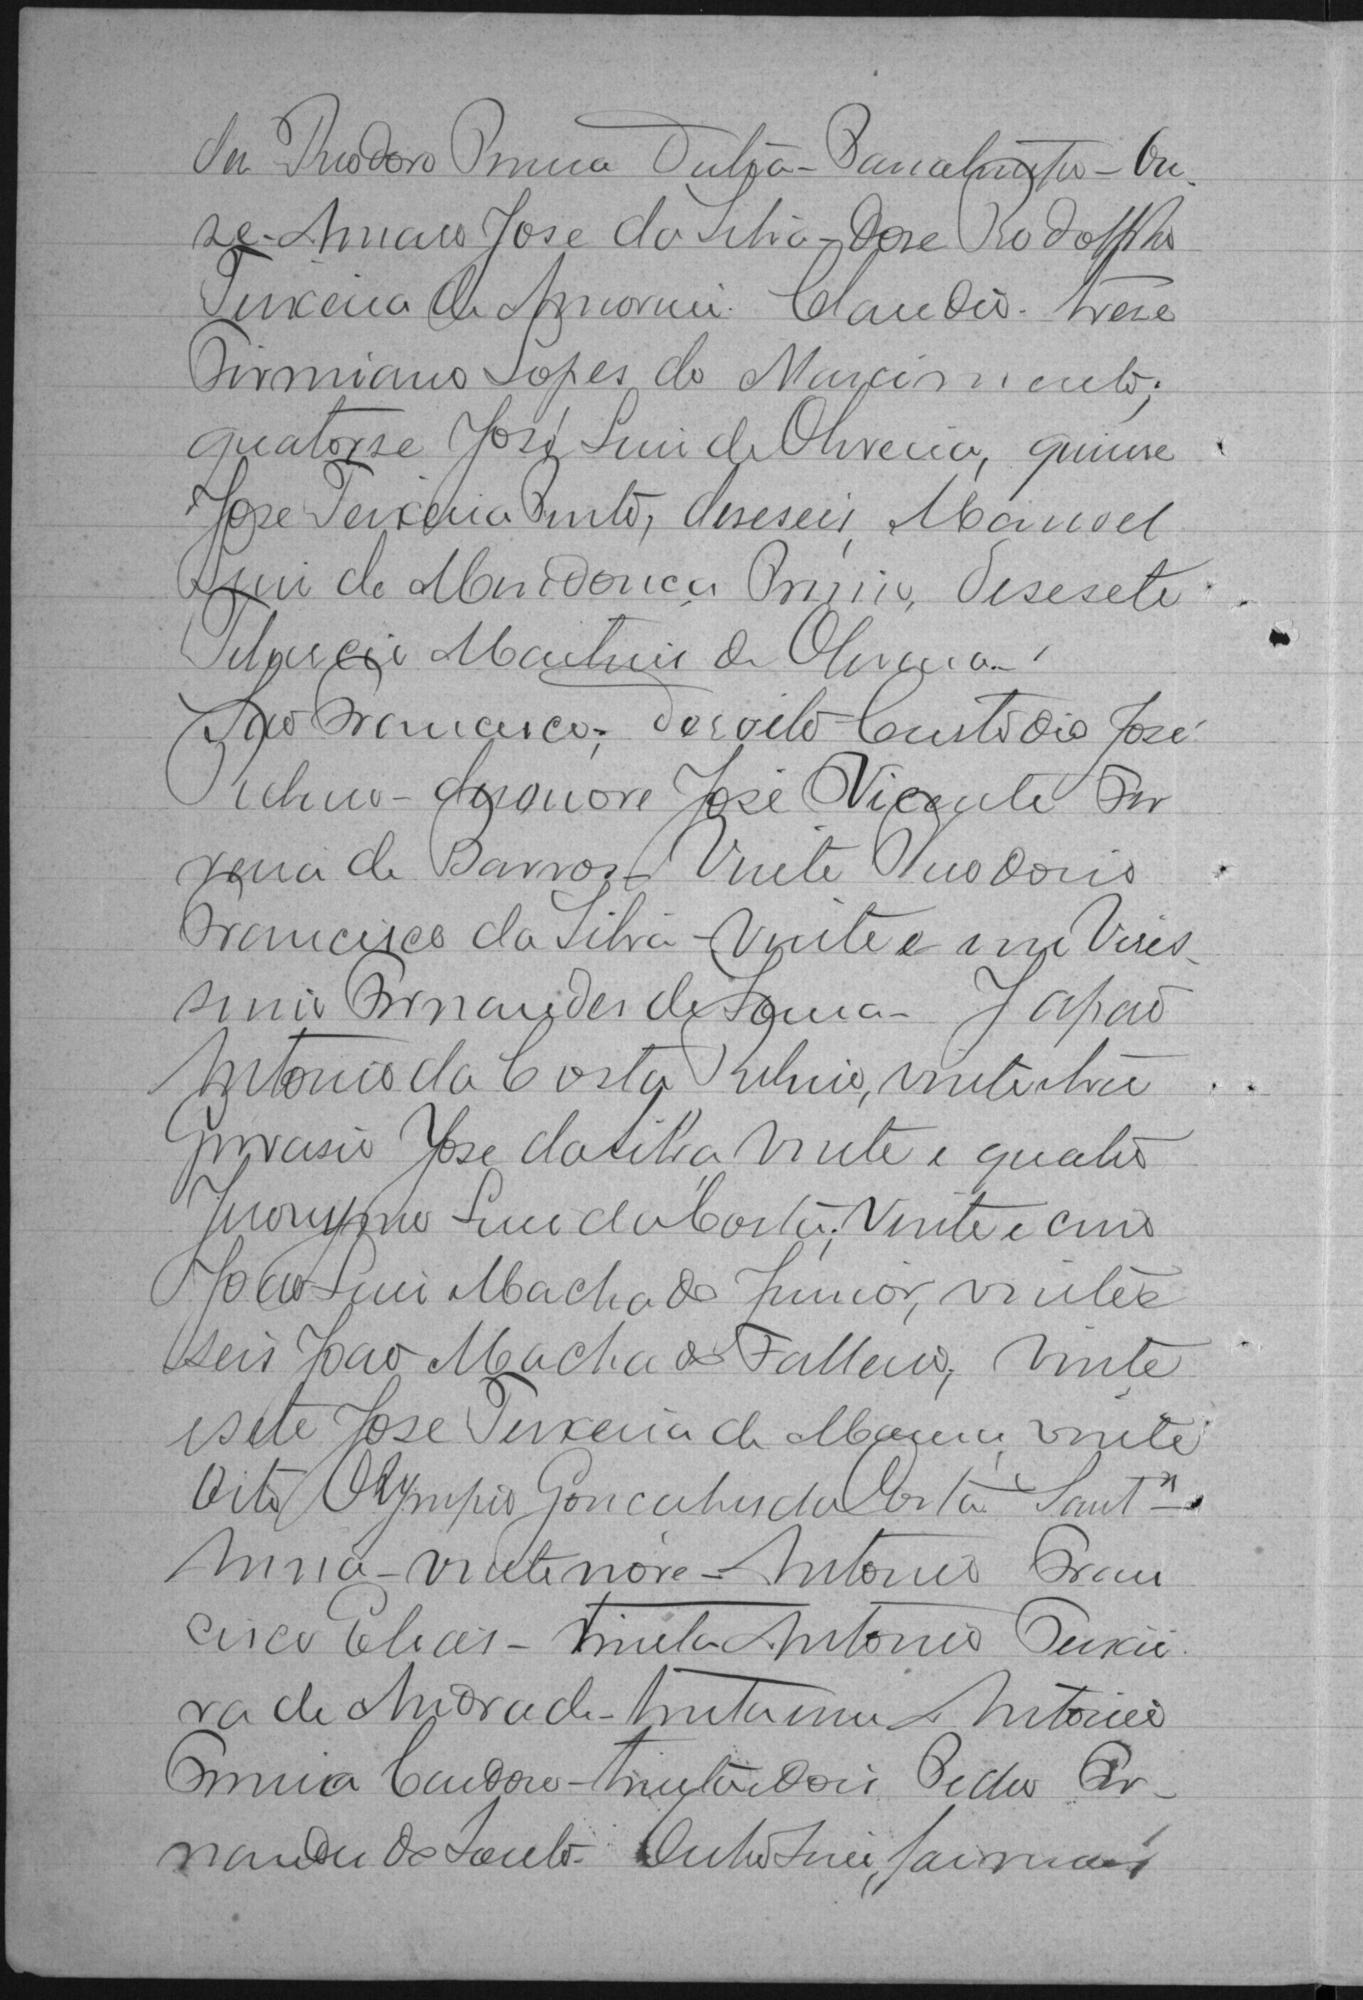 de Theodoro Dutra - On-
ze - Amaro José da Silva - Dose Rodolpho
Teixeira de Amorim. Claudio. treze
Firmiano Lopes do Nascimento;
quatorse José Luis de Oliveira, quinse
Jose Teixeira Pinto, deseseis, Manoel
Luis de Mendonça Primo, desesete
Martins de Oliveira.
São Francisco; desoito Custodio José
Pedro - desenove José Vicente Fer
reira de Barros - Vinte Theodorio
Francisco da Silva - Vinte e um Viris-
simo Fernandes de Souza - Japão
Antonio da Costa, vinte tres
Gervasio Jose da Silva Vinte e quatro
Jeronymo Luis da Costa; Vinte e cinco
João Luis Machado Junior, vinte e
seis João Machado Falleiro, vinte
e sete Jose Teixeira de vinte
Oito Olympio Goncalves da Costa Sant'
Anna - vinte nove - Antonio Fran
cisco Elias - trinta Antonio Teixei
ra de Andrade - trinta um Antonio
Cardoso - trinta e dois Pedro Fer-
nandes do Souto.